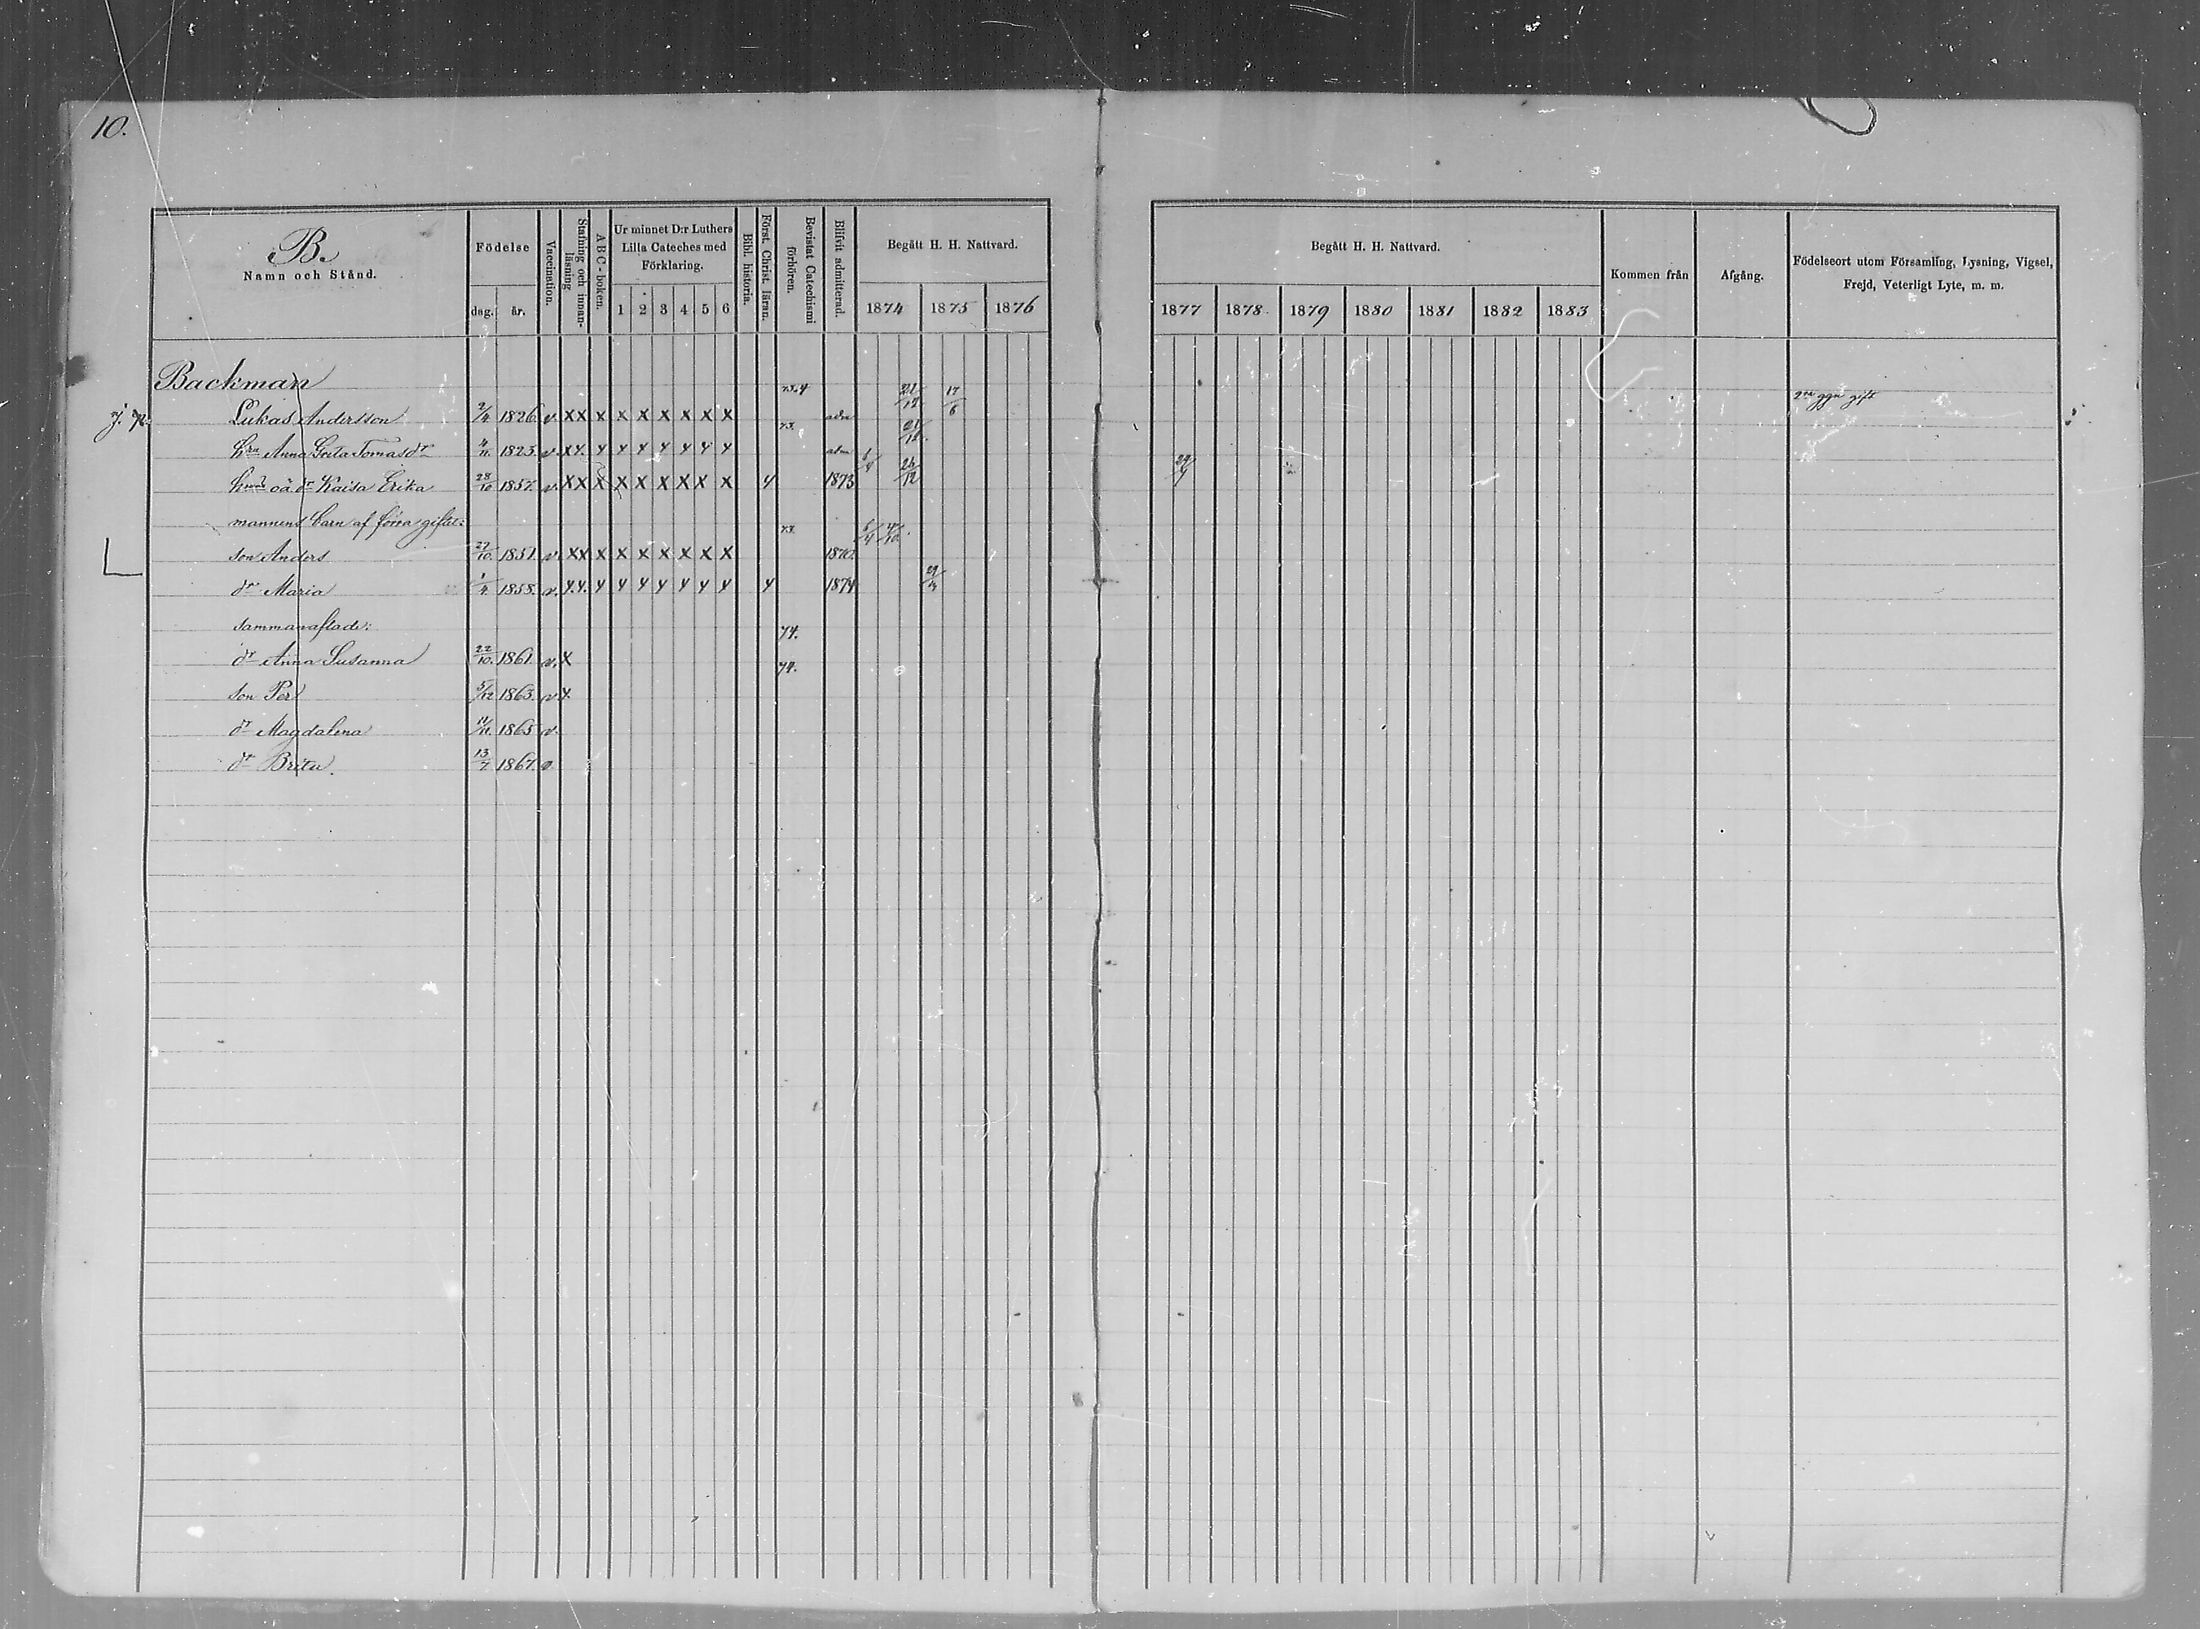 10.
B.
Namn och Stånd.
Födelse
dag. år.
Vaccination.
Stafning och innan-läsning
A B C - boken.
Ur minnet D:r Luthers Lilla Cateches med Förklaring.
1 2 3 4 5 6
Bibl. historia.
Först. Christ. läran.
Bevistat Catechismi förhören.
Blifvit admitterad.
Begått H. H. Nattvard.
1874 1875 1876
Begått H. H. Nattvard.
1877 1878 1879 1880 1881 1882 1883
Kommen från
Afgång.
Födelseort utom Församling, Lysning, Vigsel, Frejd, Veterligt Lyte, m. m.
Backman
Lukas Andersson 2/4 1826. v. X X X X X X X X X 73.4 adm 21/12 17/6 2ra ggn gift
hru Anna Greta Tomasdr 4/11. 1825. v. 73. adm 21/12
hrus oä dr Kaisa Erika 28/10 1857. v. X X X X X X X X X 1873 5/4 26/12 29/4
mannens barn af förra giftet:
son Anders 27/10. 1851. v. X X X X X X X X X 73. 1870. 5/4 4/10.
dr Maria 1/4 1858. v. 1874 29/3
sammanaflade:
dr Anna Susanna 22/10. 1861. v. X 74.
son Per 5/12 1863. v. x 74.
dr Magdalena 11/11. 1865 v.
dr Brita. 13/7 1867. v.